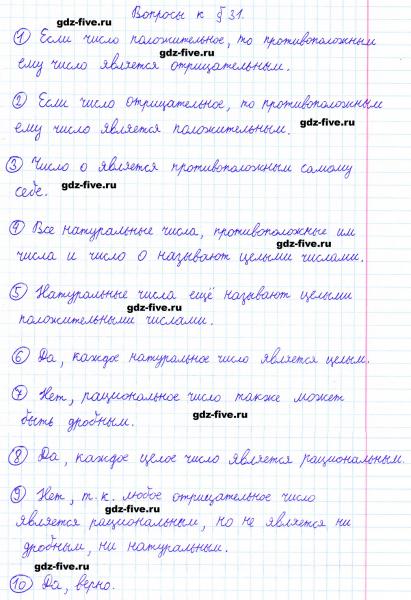 Вопросы к § 31.
gdz-five.ru
① Если число положительное, то противоположным
gdz-five.ru
ему число является отрицательным.
gdz-five.ru
② Если число отрицательное, то противоположным
gdz-five.ru
ему число является положительным.
③ Число 0 является противоположным самому
себе.
gdz-five.ru
④ Все натуральные числа, противоположные им
gdz-five.ru
числа и число 0 называют целыми числами.
⑤ Натуральные числа ещё называют целыми
gdz-five.ru
положительными числами.
gdz-five.ru
⑥ Да, каждое натуральное число является целым.
⑦ Нет, рациональное число также может
быть дробным.
gdz-five.ru
⑧ Да, каждое целое число является рациональным.
gdz-five.ru
⑨ Нет, т.к. любое отрицательное число
gdz-five.ru
является рациональным, но не является ни
дробным, ни натуральным.
gdz-five.ru
⑩ Да, верно.
gdz-five.ru